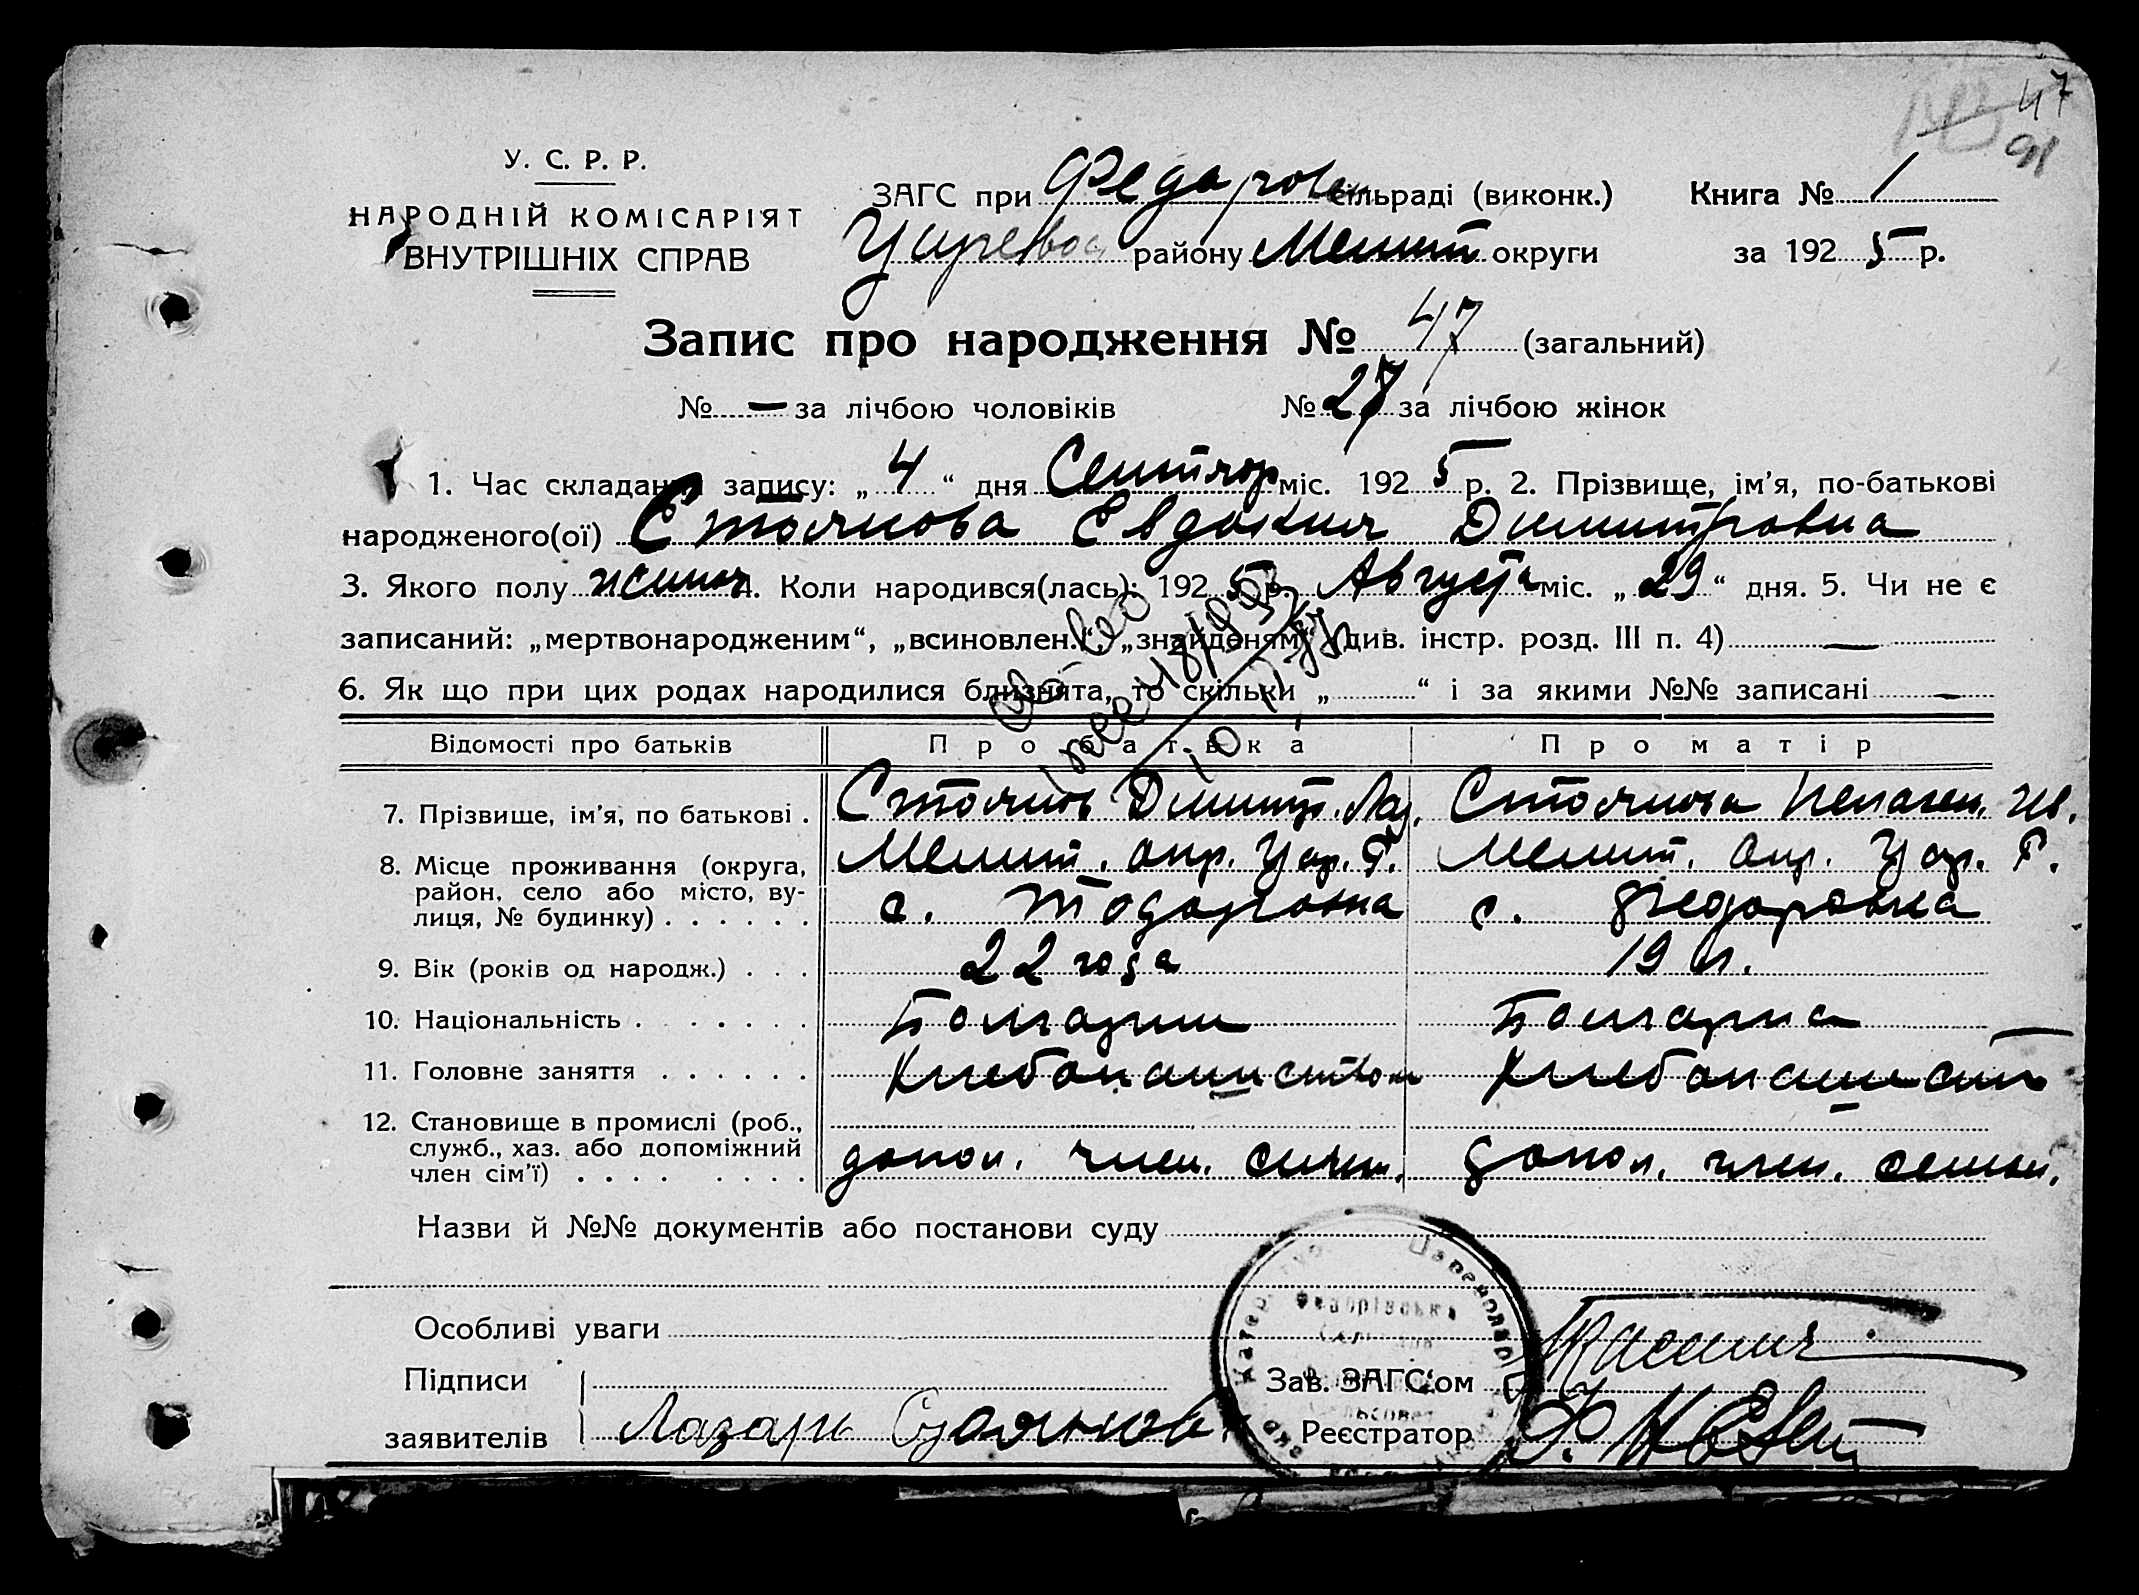 47
91
У. С. Р. Р.
НАРОДНІЙ КОМІСАРІЯТ
ВНУТРІШНІХ СПРАВ
ЗАГС при Федоров сільраді (виконк.) Книга № 1
району Мелит округи за 1925 р.
Запис про народження № 47 (загальний)
№ — за лічбою чоловіків № 27 за лічбою жінок
1. Час складання запису: „ 4 “ дня Сентябр міс. 1925 р. 2. Прізвище, ім’я, по-батькові
народженого(ої) Стоянова Евдокия Димитровна
3. Якого полу женск 4. Коли народився(лась): 1925 р. Августа міс. „ 29 “ дня. 5. Чи не є
записаний: „мертвонародженим“, „всиновлен.“, „знайденям“ (див. інстр. розд. III п. 4) —
6. Як що при цих родах народилися близнята, то скільки „ “ і за якими №№ записані —
Відомості про батьків Про батька Про матір
7. Прізвище, ім’я, по батькові . Стоянов Димитр. Лаз. Стоянова Пелаген. Ив.
8. Місце проживання (округа, Мелит. окр. Цар. Р. Мелит. окр. Цар. Р.
район, село або місто, ву-
лиця, № будинку) . . . . . . с. Тодоровка с. Федоровка
9. Вік (років од народж.) . . . 22 года 19 л.
10. Національність . . . . . . Болгарин Болгарка
11. Головне заняття . . . . . . Хлебопашеством Хлебопашест
12. Становище в промислі (роб.,
служб., хаз. або допоміжний допол. член. семьи. допол. член. семьи.
член сім’ї) . . . . . . . .
Назви й №№ документів або постанови суду
Особливі уваги
Підписи Зав. ЗАГС‘ом
заявителів Лазарь Стоянов Реєстратор
Федорівська